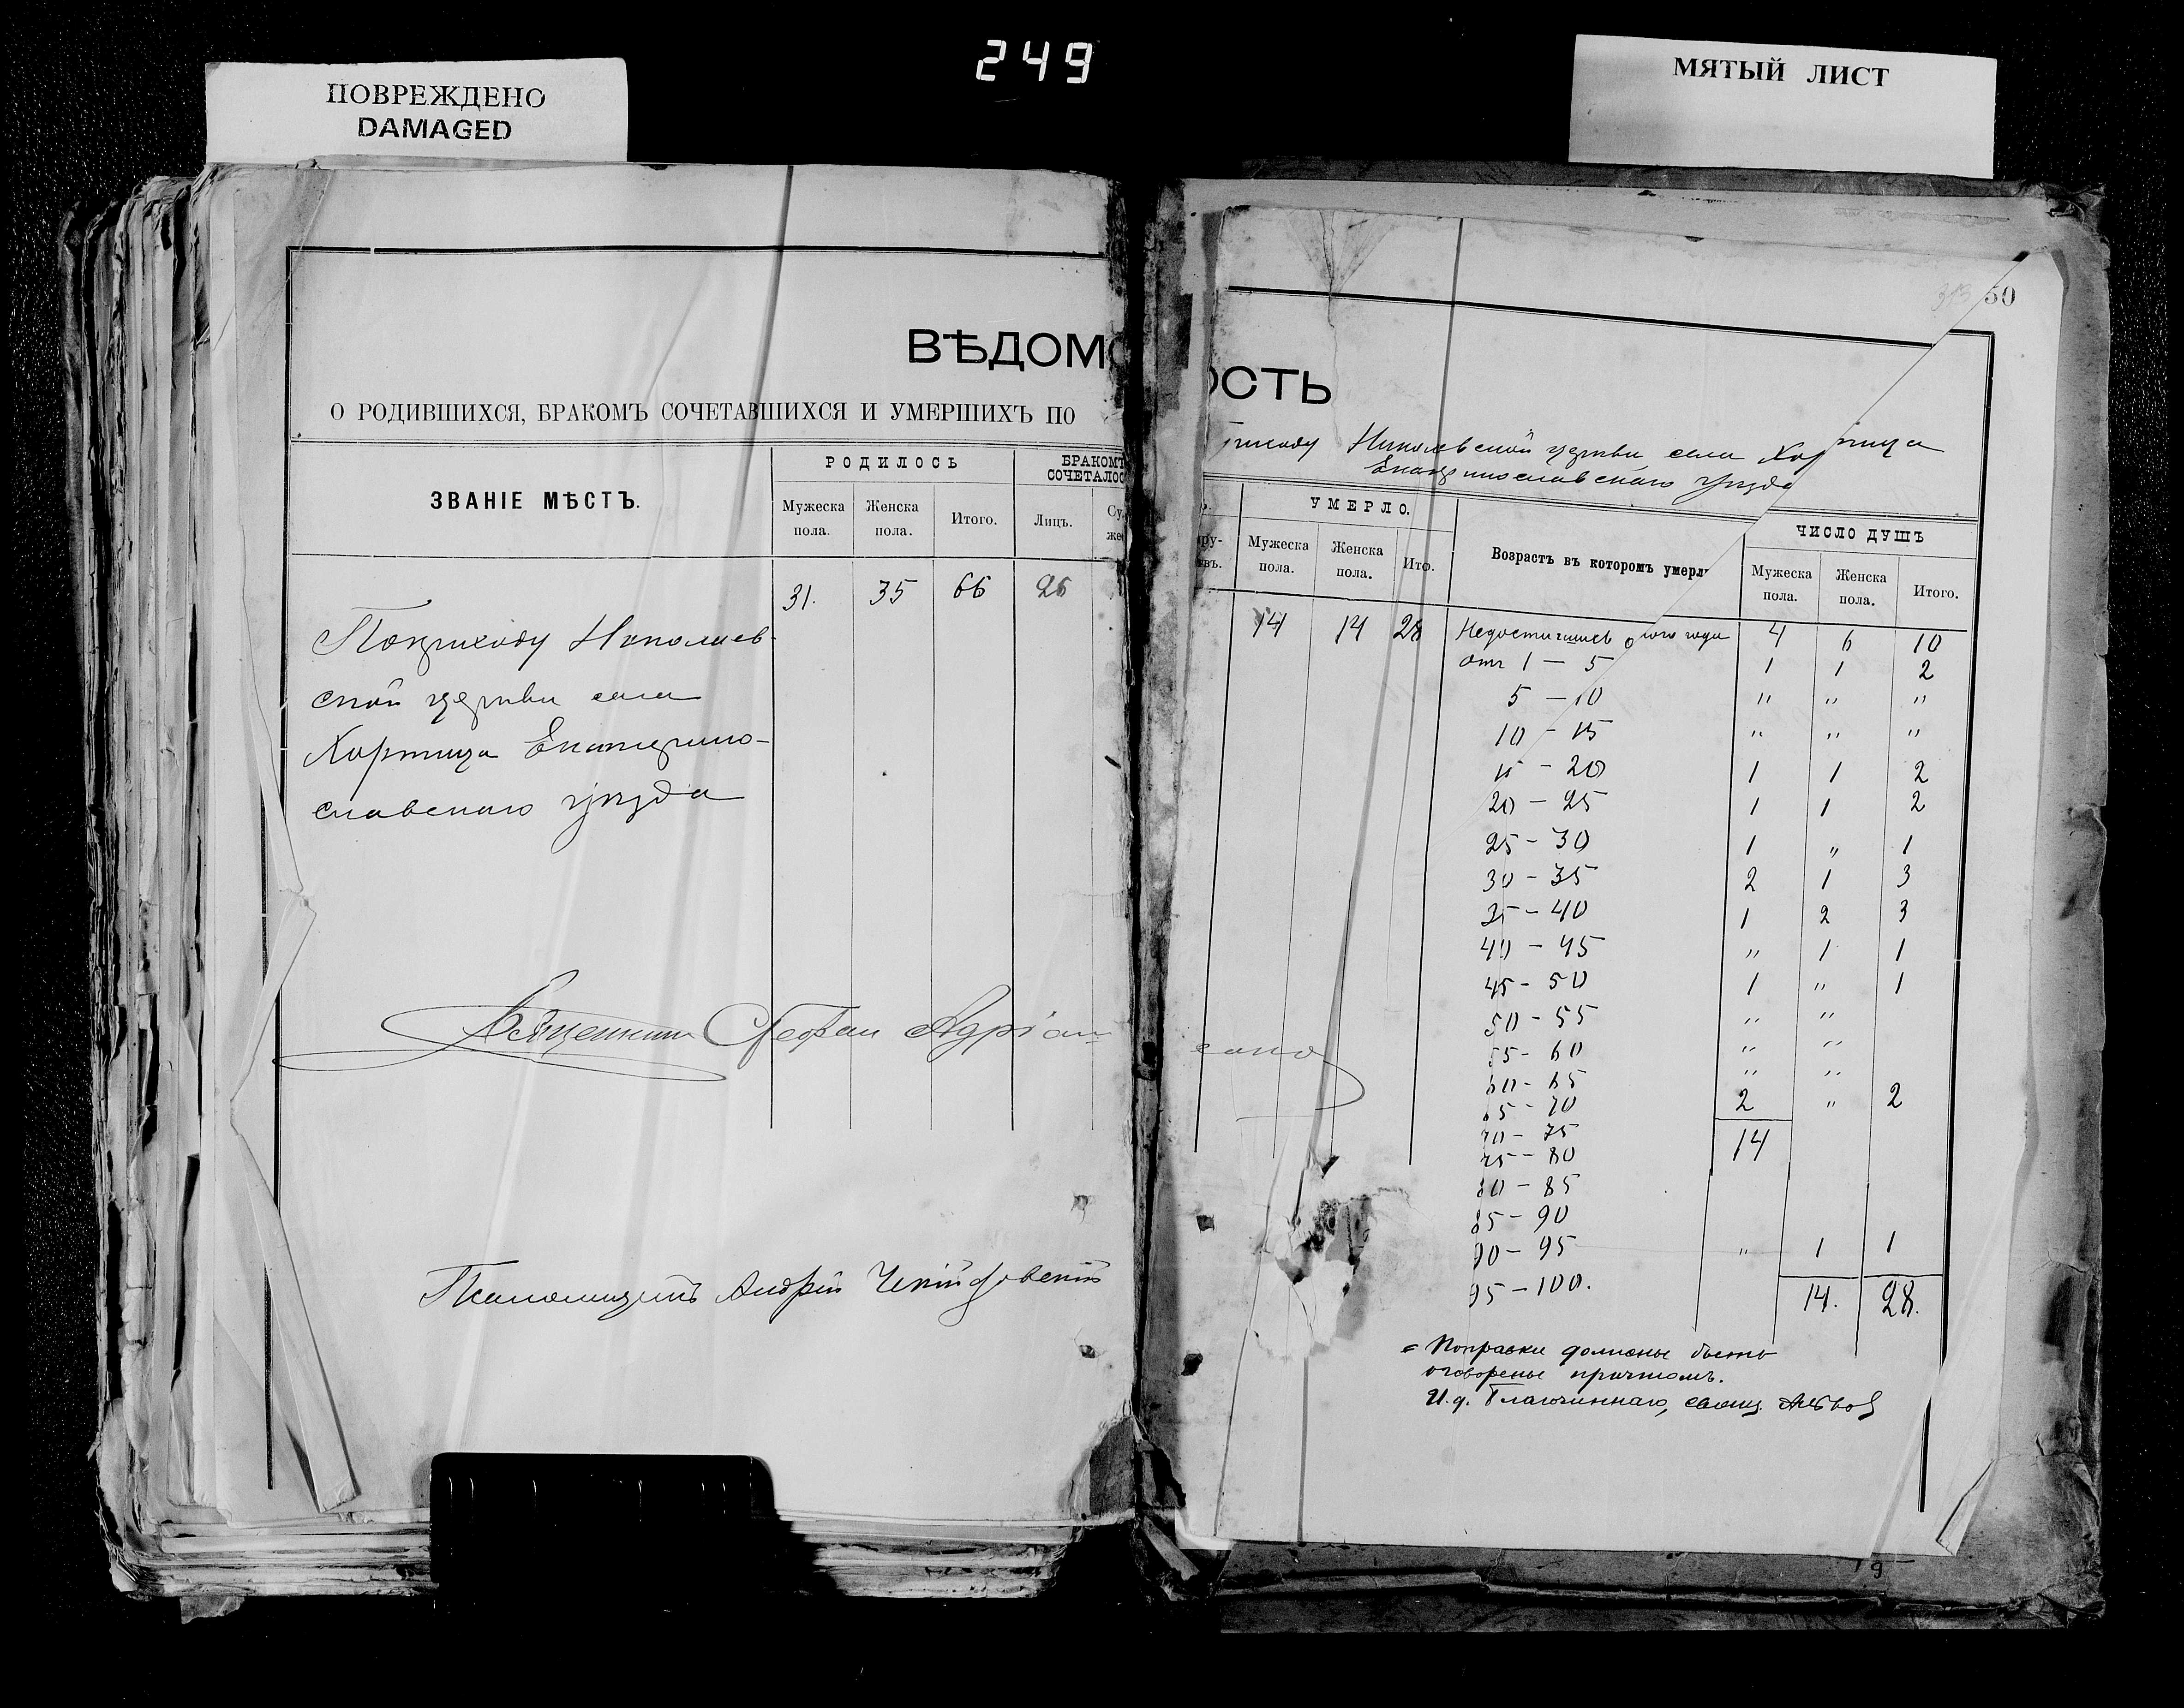 249
ПОВРЕЖДЕНО
DAMAGED
МЯТЫЙ ЛИСТ
50
ВѢДОМО
О РОДИВШИХСЯ, БРАКОМЪ СОЧЕТАВШИХСЯ И УМЕРШИХЪ ПО
ЗВАНІЕ МѢСТЪ.
РОДИЛОСЬ
БРАКОМЪ СОЧЕТАЛОС
Мужеска пола.
Женска пола.
Итого.
Лицъ.
Су
же
31. 35 66 26
По приходу Николаев-
ской церкви села
Хортица Екатерино-
славскаго уѣзда
Священникъ Стефан Адріан-
Псаломщикъ Андрей
ОСТЬ
приходу Николаевской церкви села Хортица
Екатеринославскаго уѣзда
УМЕРЛО.
Возрастъ въ которомъ умерл
ЧИСЛО ДУШЪ
ру-
въ.
Мужеска пола.
Женска пола.
Ито.
Мужеска пола.
Женска пола.
Итого.
14 14 28 Недостигшихъ одного года 4 6 10
отъ 1 — 5 1 1 2
5 — 10 " " "
10 — 15 " " "
15 — 20 1 1 2
20 — 25 1 1 2
25 — 30 1 " 1
30 — 35 2 1 3
35 — 40 1 2 3
40 — 45 " 1 1
45 — 50 1 " 1
50 — 55 " "
55 — 60 " "
60 — 65 " "
65 — 70 2 " 2
70 — 75 14
75 — 80
80 — 85
85 — 90
90 — 95 " 1 1
95 — 100. 14. 28.
= Поправки должны быть
оговорены причтомъ.
И. д. Благочиннаго, свящ.
9